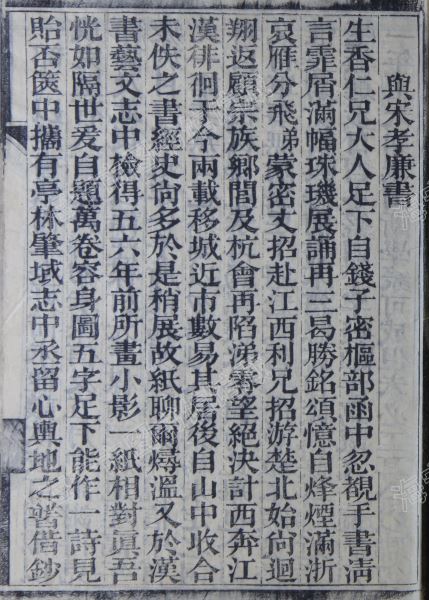 與宋孝廉書
生香仁兄大人足下自錢子密樞部函中忽覩手書淸
言霏屑滿幅珠璣展誦再三曷勝銘頌憶自烽煙滿浙
哀雁分飛弟蒙密丈招赴江西利兄招游楚北始尙迴
翔返顧宗族鄉閭及杭會再陷涕零望絕決計西奔江
漢徘徊于今兩載移城近市數易其居後自山中收合
未佚之書經史尙多於是稍展故紙聊爾燖溫又於漢
書藝文志中檢得五六年前所畫小影一紙相對眞吾
恍如隔世爰自題萬卷容身圖五字足下能作一詩見
貽否篋中攜有亭林肇域志中丞留心輿地之學借鈔